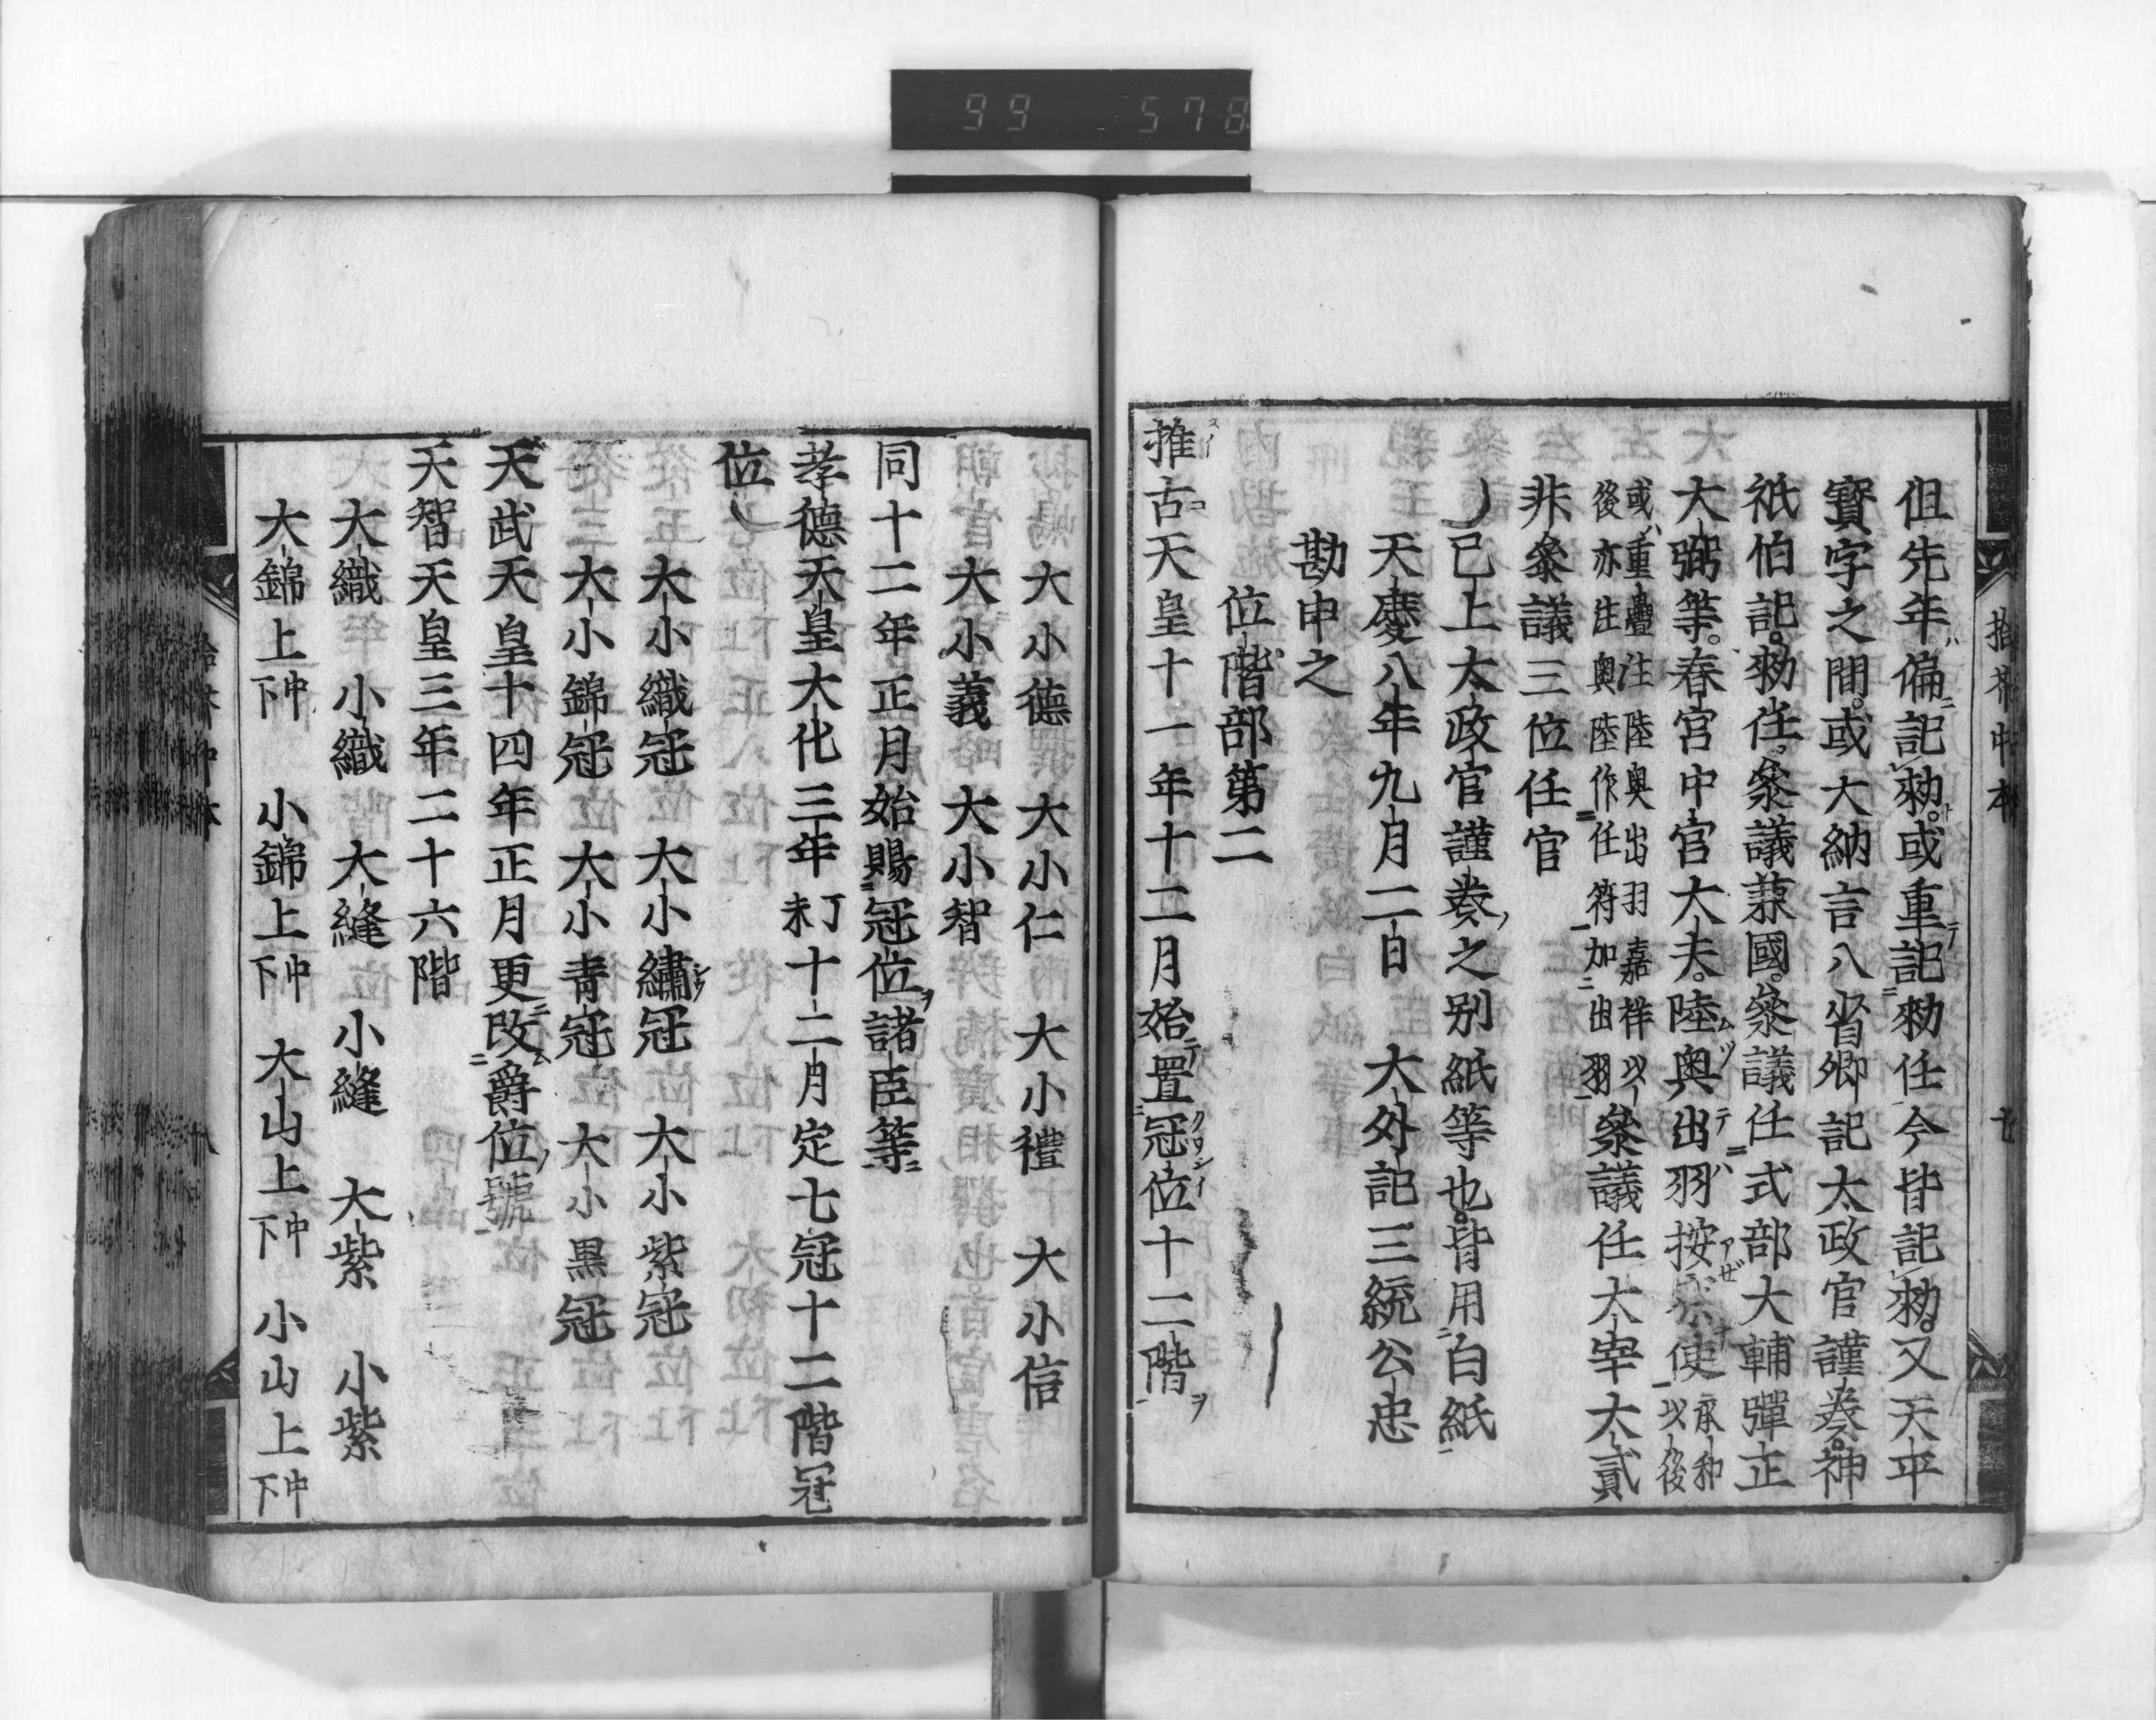 99 578
但先年偏記勑或重記勑任今皆記勑又天平
寳字之間或大納言八省卿記太政官謹奏神
祇伯記勑任叅議蒹國叅議任式部大輔彈正
大弼等春宮中宮大夫陸奥出羽按察使承和以後
或重疊注陸奥出羽嘉祥以
後亦注奥陸作任符加出羽
叅議任太宰大貳
非叅議三位任官
已上太政官謹奏之别紙等也皆用白紙
天慶八年九月二日 大外記三統公忠
勘申之
位階部第二
推古天皇十一年十二月始置冠位十二階
拾芥中本
七
大小德 大小仁 大小禮 大小信
大小義 大小智
同十二年正月始賜冠位諸臣等
孝德天皇大化三年丁未十二月定七冠十二階冠
位
大小織冠 大小繡冠 大小紫冠
大小錦冠 大小青冠 大小黒冠
天武天皇十四年正月更改爵位號
天智天皇三年二十六階
大織 小織 大縫 小縫 大紫 小紫
大錦上中下 小錦上中下 大山上中下 小山上中下
八